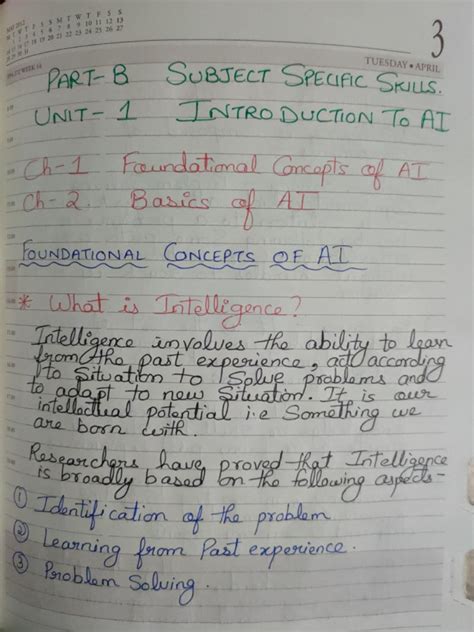 3
TUESDAY • APRIL
PART-B SUBJECT SPECIFIC SKILLS.
UNIT-1 INTRODUCTION TO AI
Ch-1 Foundational Concepts of AI
Ch-2. Basics of AI
FOUNDATIONAL CONCEPTS OF AI
* What is Intelligence?
Intelligence involves the ability to learn
from the past experience, act according
to Situation to Solve problems and
to adapt to new Situation. It is our
intellectual potential i.e Something we
are born with.
Researchers have proved that Intelligence
is broadly based on the following aspects-
① Identification of the problem
② Learning from Past experience.
③ Problem Solving.